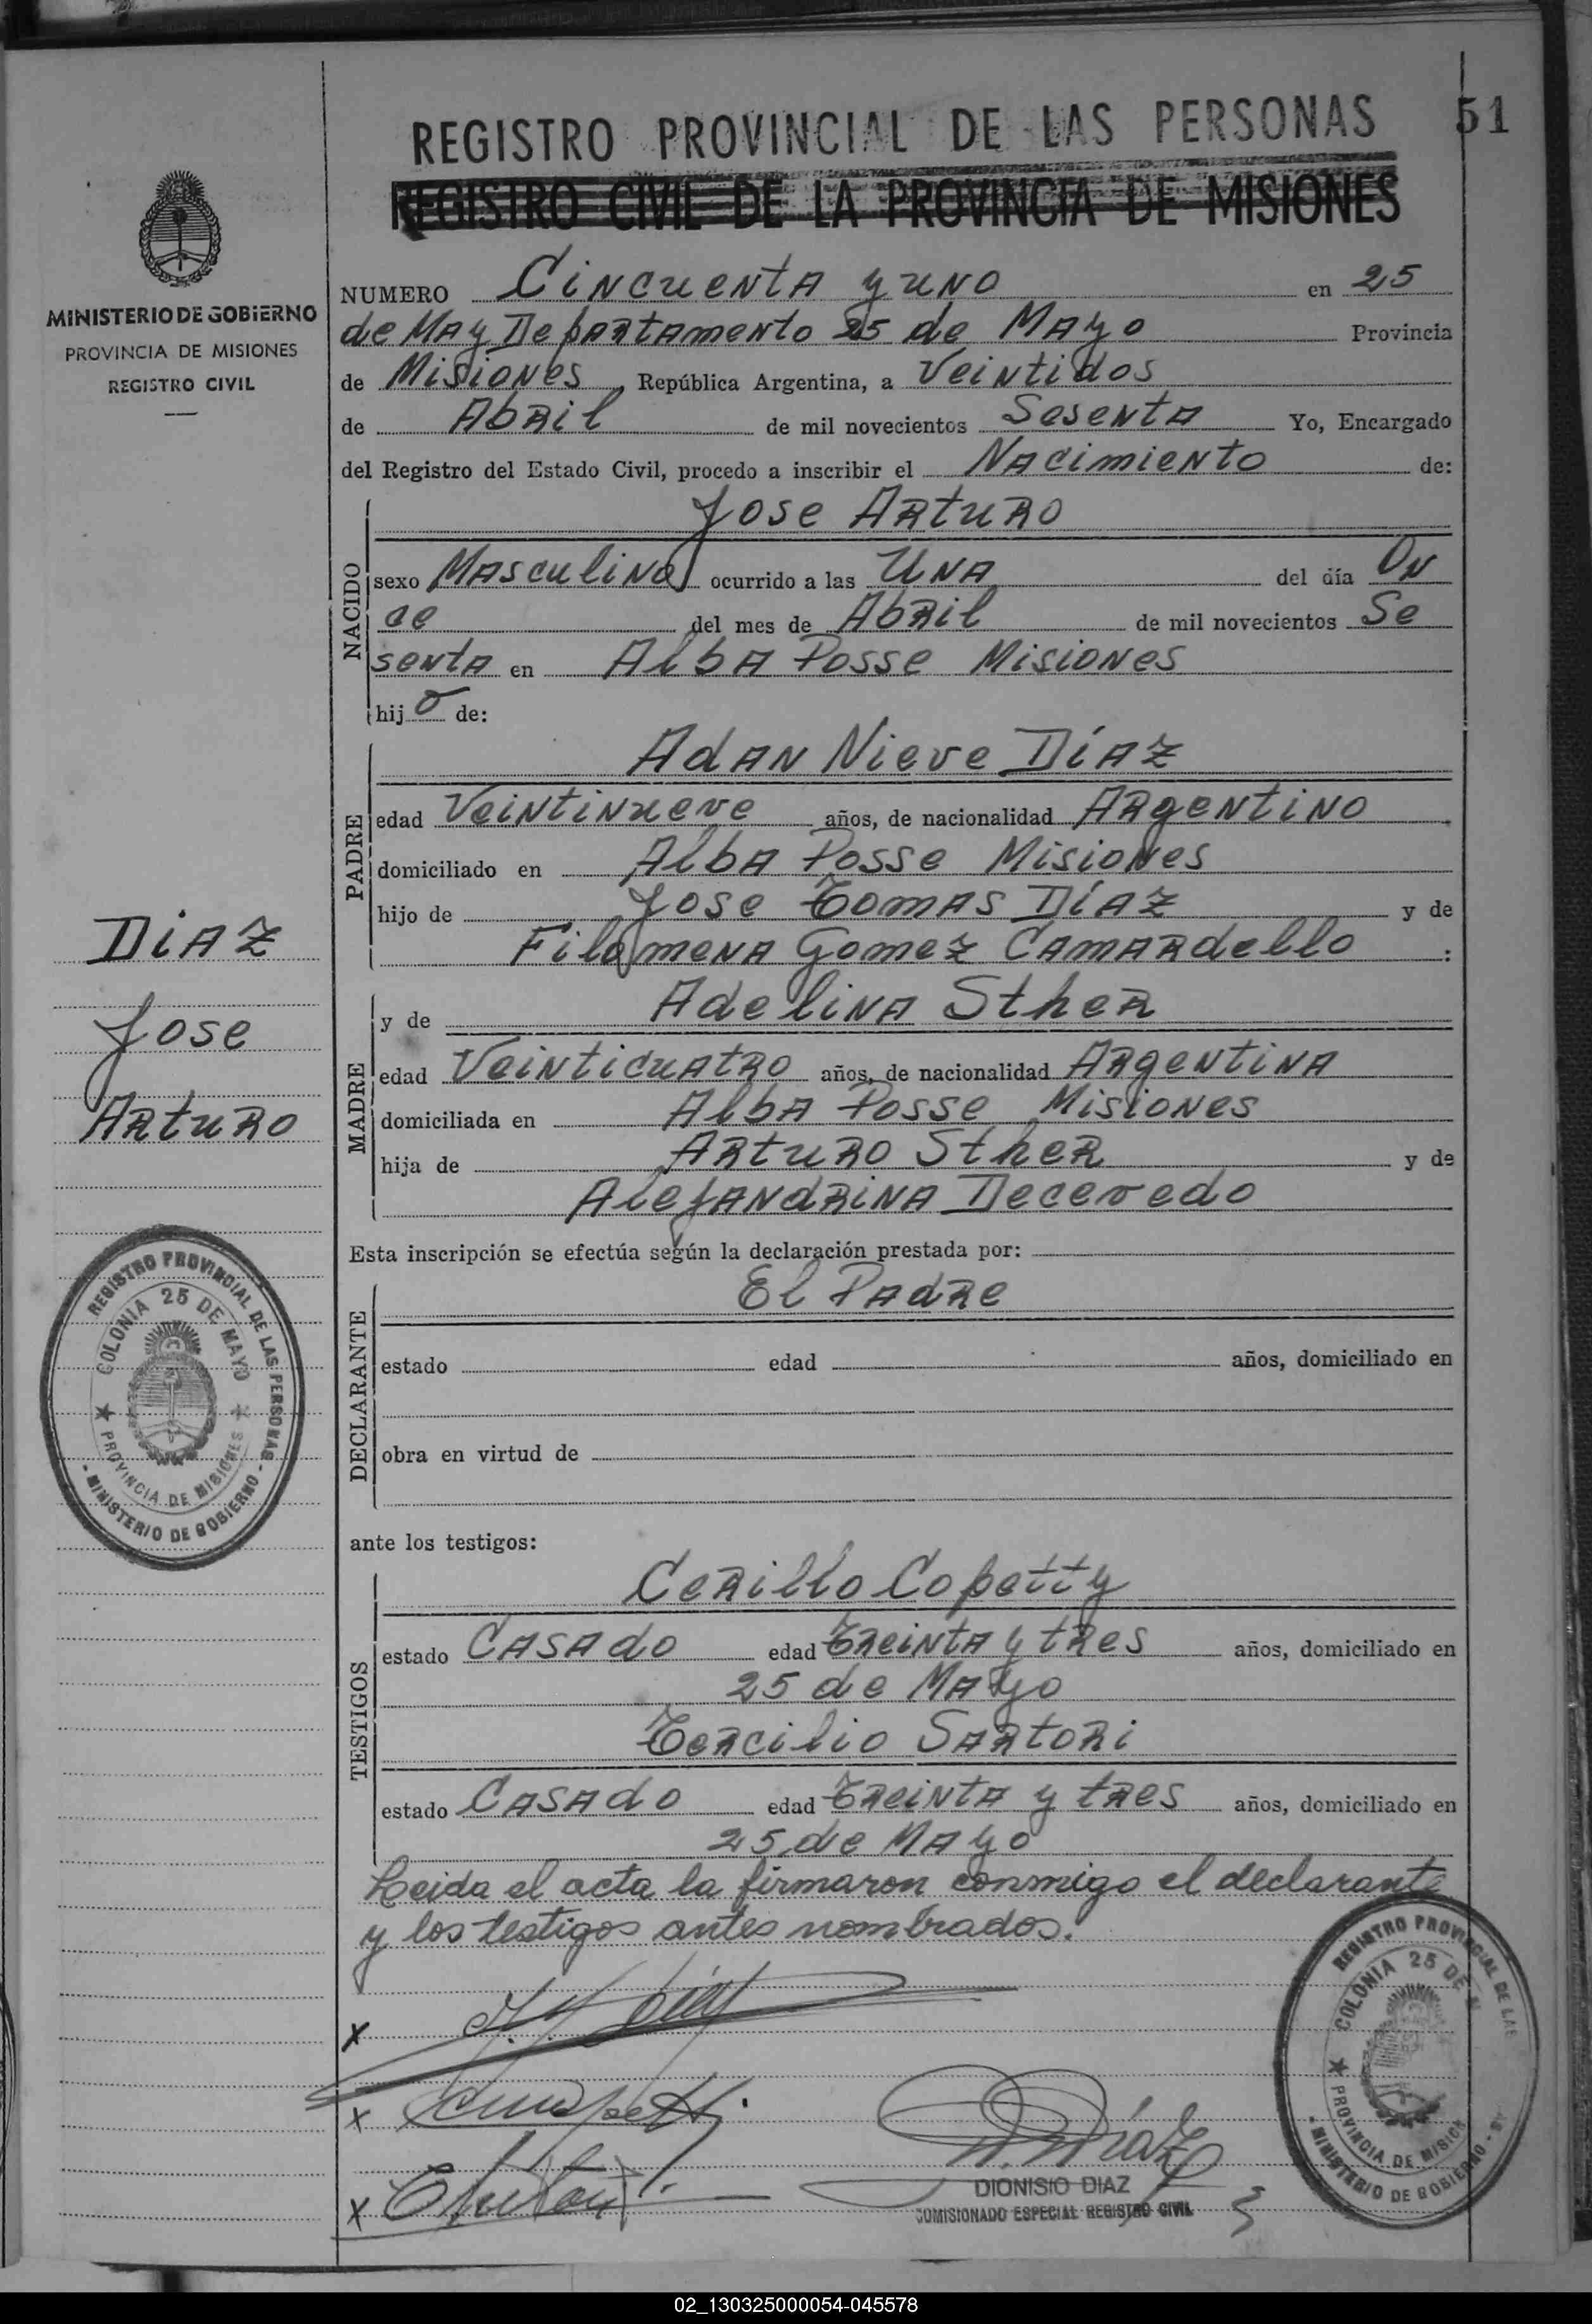 REGISTRO PROVINCIAL DE LAS PERSONAS 51
REGISTRO CIVIL DE LA PROVINCIA DE MISIONES
MINISTERIO DE GOBIERNO
PROVINCIA DE MISIONES
REGISTRO CIVIL
NUMERO Cincuenta y uno en 25
de May Departamento 25 de Mayo Provincia
de Misiones, República Argentina, a Veintidos
de Abril de mil novecientos Sesenta Yo, Encargado
del Registro del Estado Civil, procedo a inscribir el Nacimiento de:
NACIDO
Jose Arturo
sexo Masculino ocurrido a las Una del día On
ce del mes de Abril de mil novecientos Se
senta en Alba Posse Misiones
hijo de:
PADRE
Adan Nieve Díaz
edad Veintinueve años, de nacionalidad Argentino
domiciliado en Alba Posse Misiones
hijo de Jose Tomas Díaz y de
Filomena Gomez Camardello :
MADRE
y de Adelina Sther
edad Veinticuatro años, de nacionalidad Argentina
domiciliada en Alba Posse Misiones
hija de Arturo Sther y de
Alejandrina Decevedo
Diaz
Jose
Arturo
Esta inscripción se efectúa según la declaración prestada por:
DECLARANTE
El Padre
estado edad años, domiciliado en
obra en virtud de
REGISTRO PROVINCIAL DE LAS PERSONAS
COLONIA 25 DE MAYO
PROVINCIA DE MISIONES
- MINISTERIO DE GOBIERNO -
ante los testigos:
TESTIGOS
Cerillo Copetty
estado Casado edad Treinta y tres años, domiciliado en
25 de Mayo
Tercilio Sartori
estado Casado edad Treinta y tres años, domiciliado en
25 de Mayo
Leida el acta la firmaron conmigo el declarante
y los testigos antes nombrados.
x
x
x
D. Díaz
DIONISIO DIAZ
COMISIONADO ESPECIAL REGISTRO CIVIL
REGISTRO PROVINCIAL DE LAS
COLONIA 25 DE M
PROVINCIA DE MISION
- MINISTERIO DE GOBIERNO -
02_130325000054-045578